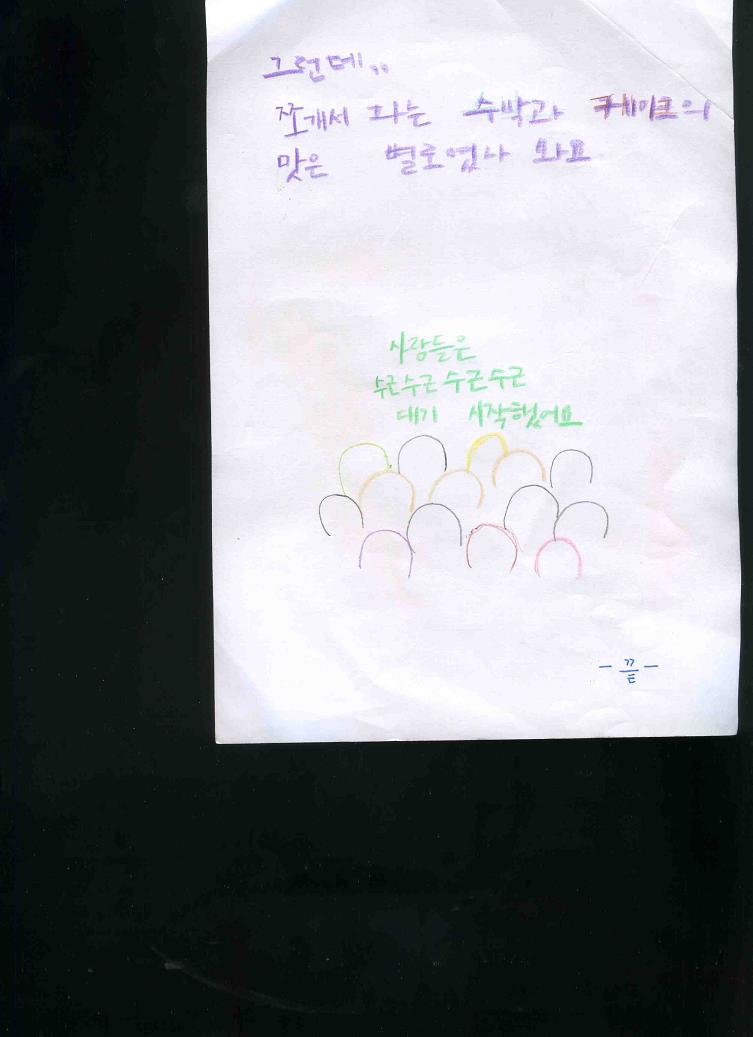 그런데..
쪼개서 파는 수박과 케이크의
맛은 별로였나 봐요
사람들은
수근수근 수근수근
대기 시작했어요
- 끝 -